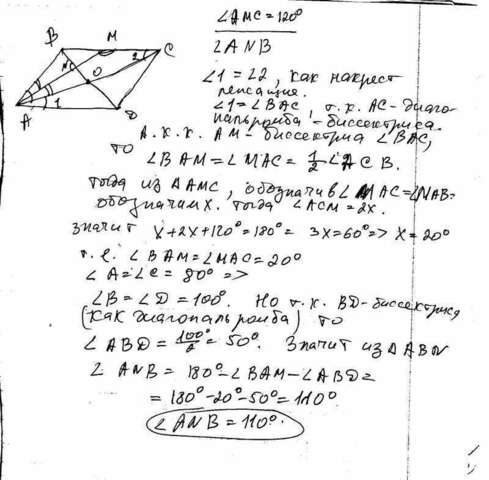 ∠AMC = 120°
∠ANB
B M C
N O 2
A 1 D
∠1 = ∠2, как накрест
лежащие.
∠1 = ∠BAC, т.к. AC - диаго-
наль ромба, - биссектриса.
А.к.к. AM - биссектриса ∠BAC,
то
∠BAM = ∠MAC = 1/2 ∠ACB.
тогда из △AMC, обозначив ∠MAC = ∠NAB =
обозначим x. тогда ∠ACM = 2x.
значит x + 2x + 120° = 180° = 3x = 60° => x = 20°
т.е. ∠BAM = ∠MAC = 20°
∠A = ∠C = 80° =>
∠B = ∠D = 100°. Но т.к. BD - биссектриса
(как диагональ ромба) то
∠ABD = 100°/2 = 50°. Значит из △ABN
∠ANB = 180° - ∠BAM - ∠ABD =
= 180° - 20° - 50° = 110°
∠ANB = 110°.